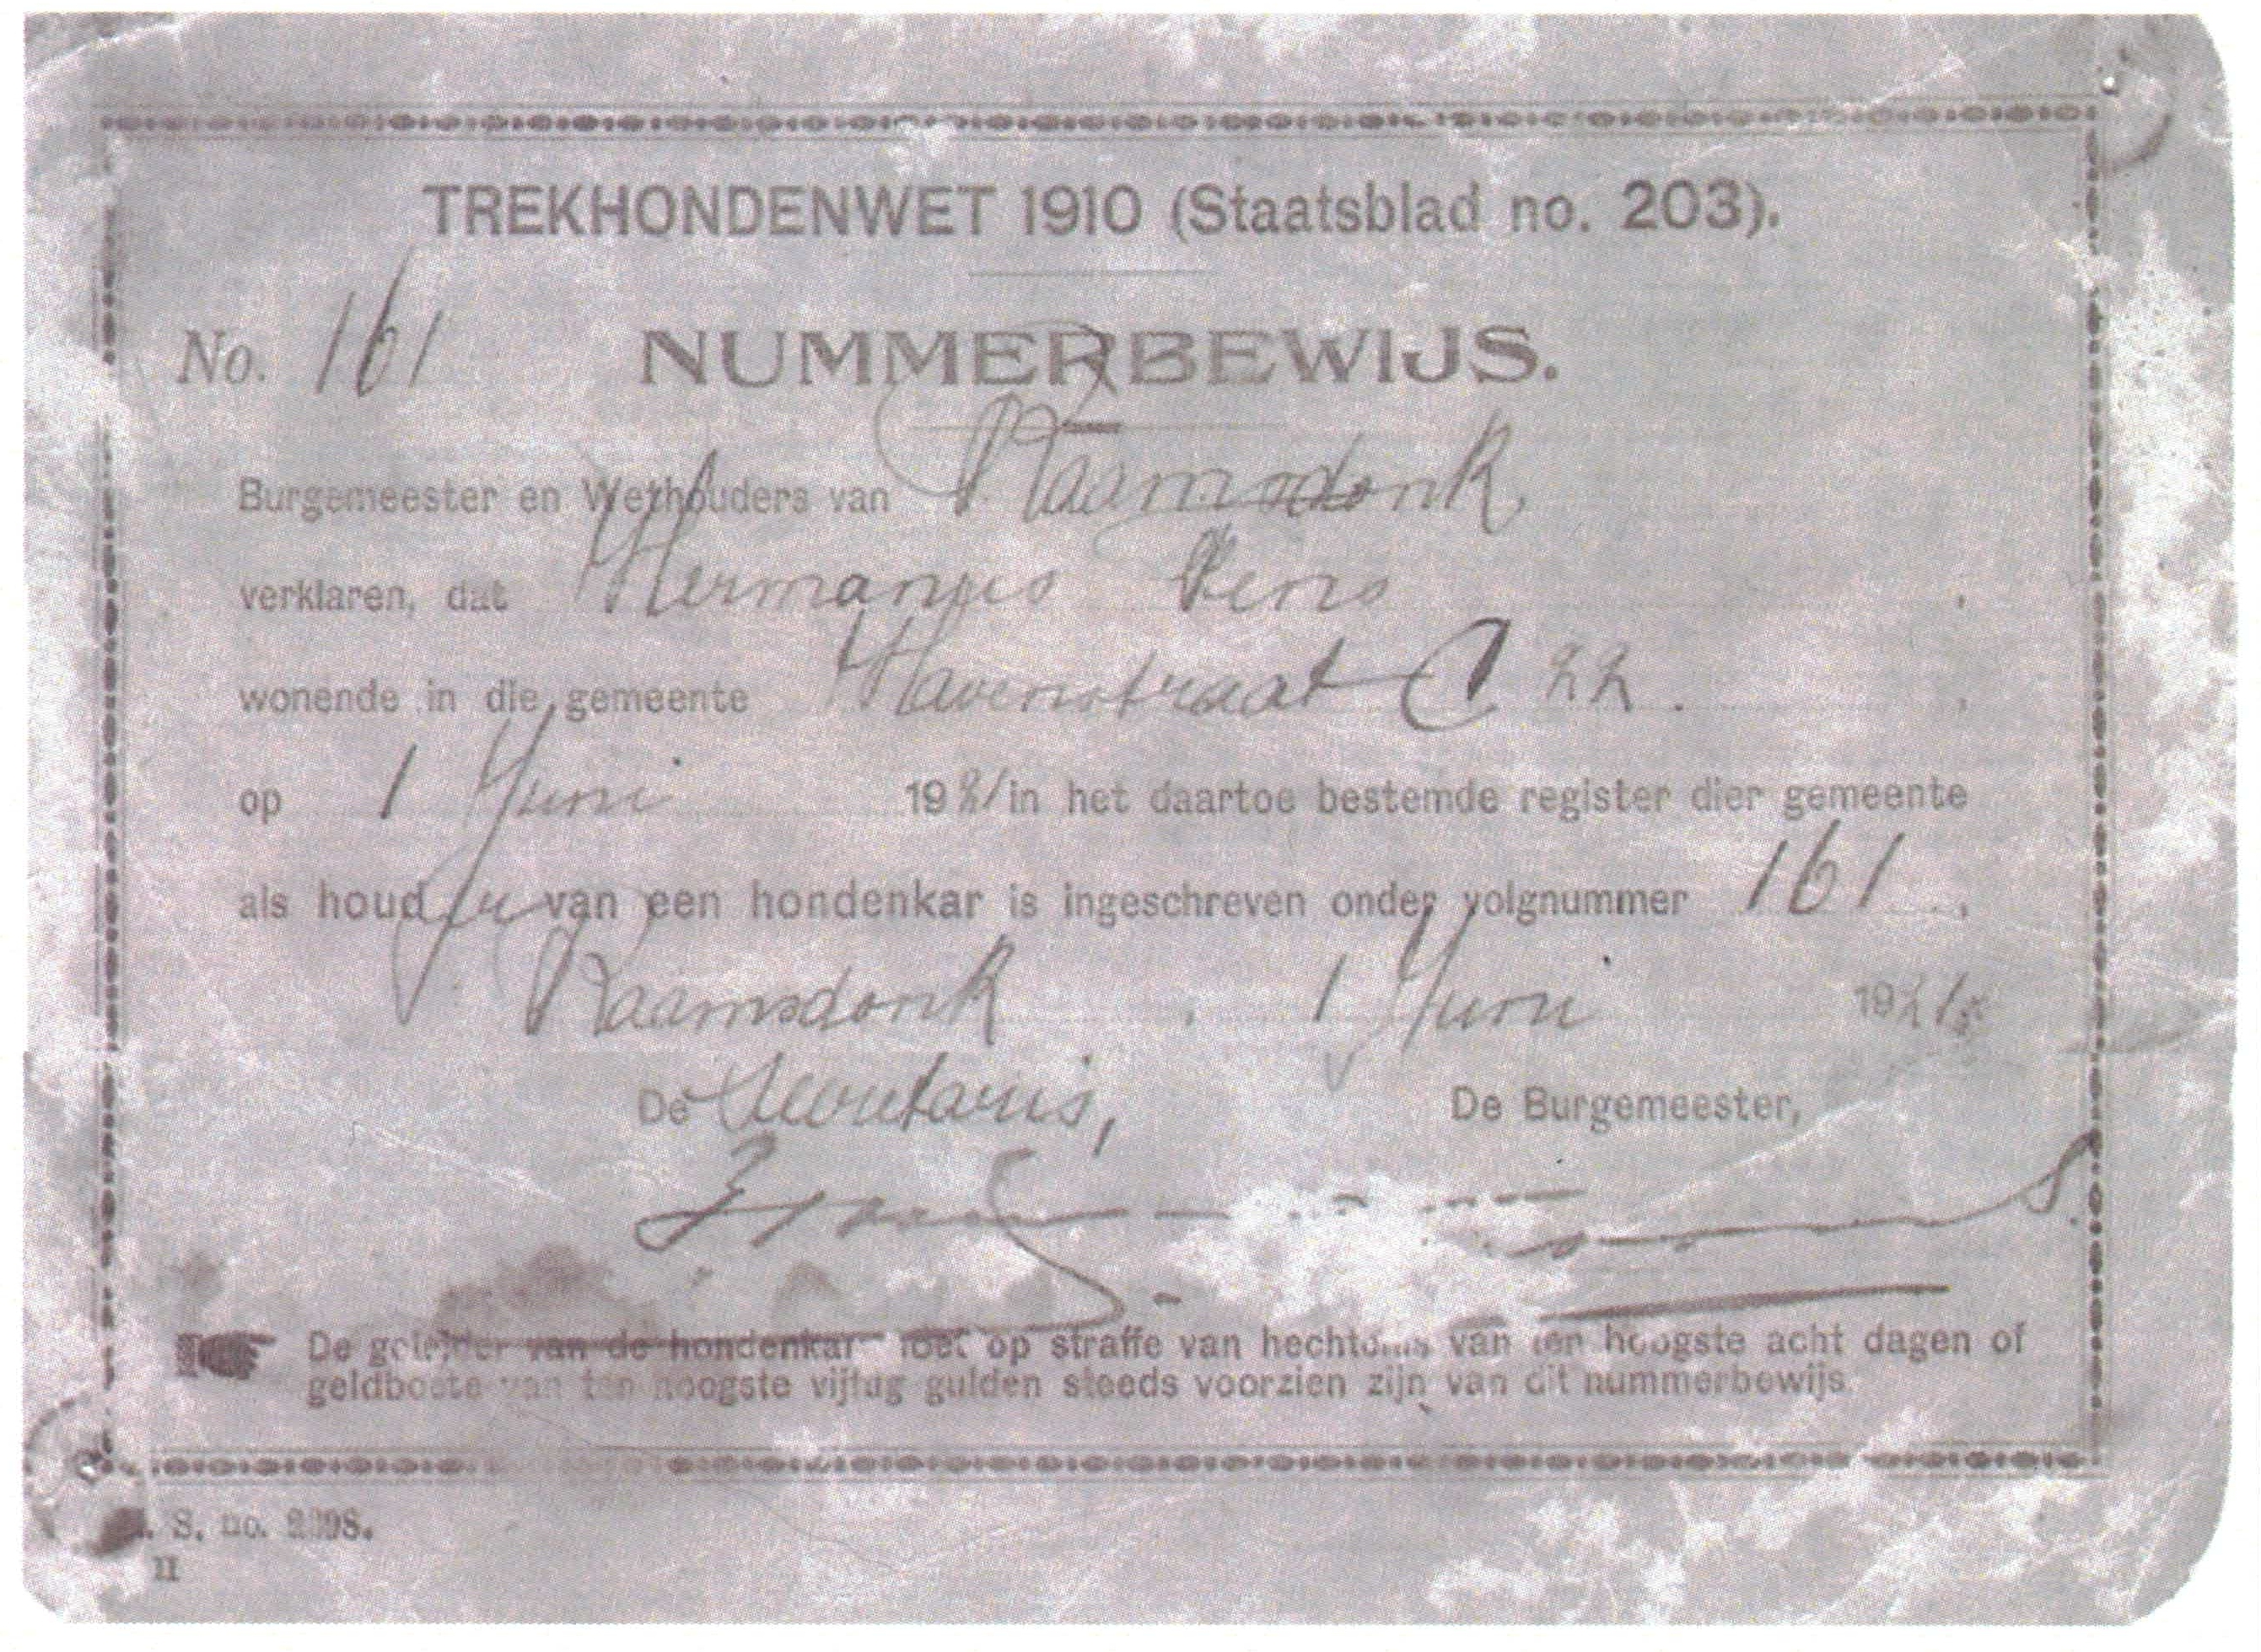 TREKHONDENWET 1910 (Staatsblad no. 203).
No. 161 NUMMERBEWIJS.
Burgemeester en Wethouders van Raamsdonk
verklaren, dat Hermanus Rens,
wonende in die gemeente Havenstraat C 22.,
op 1 Juni 1921 in het daartoe bestemde register dier gemeente
als houder van een hondenkar is ingeschreven onder volgnummer 161.,
Raamsdonk, 1 Juni 1921
De Secretaris, De Burgemeester,
De geleider van de hondenkar moet op straffe van hechtenis van ten hoogste acht dagen of
geldboete van ten hoogste vijftig gulden steeds voorzien zijn van dit nummerbewijs.
S. no. 2398.
II